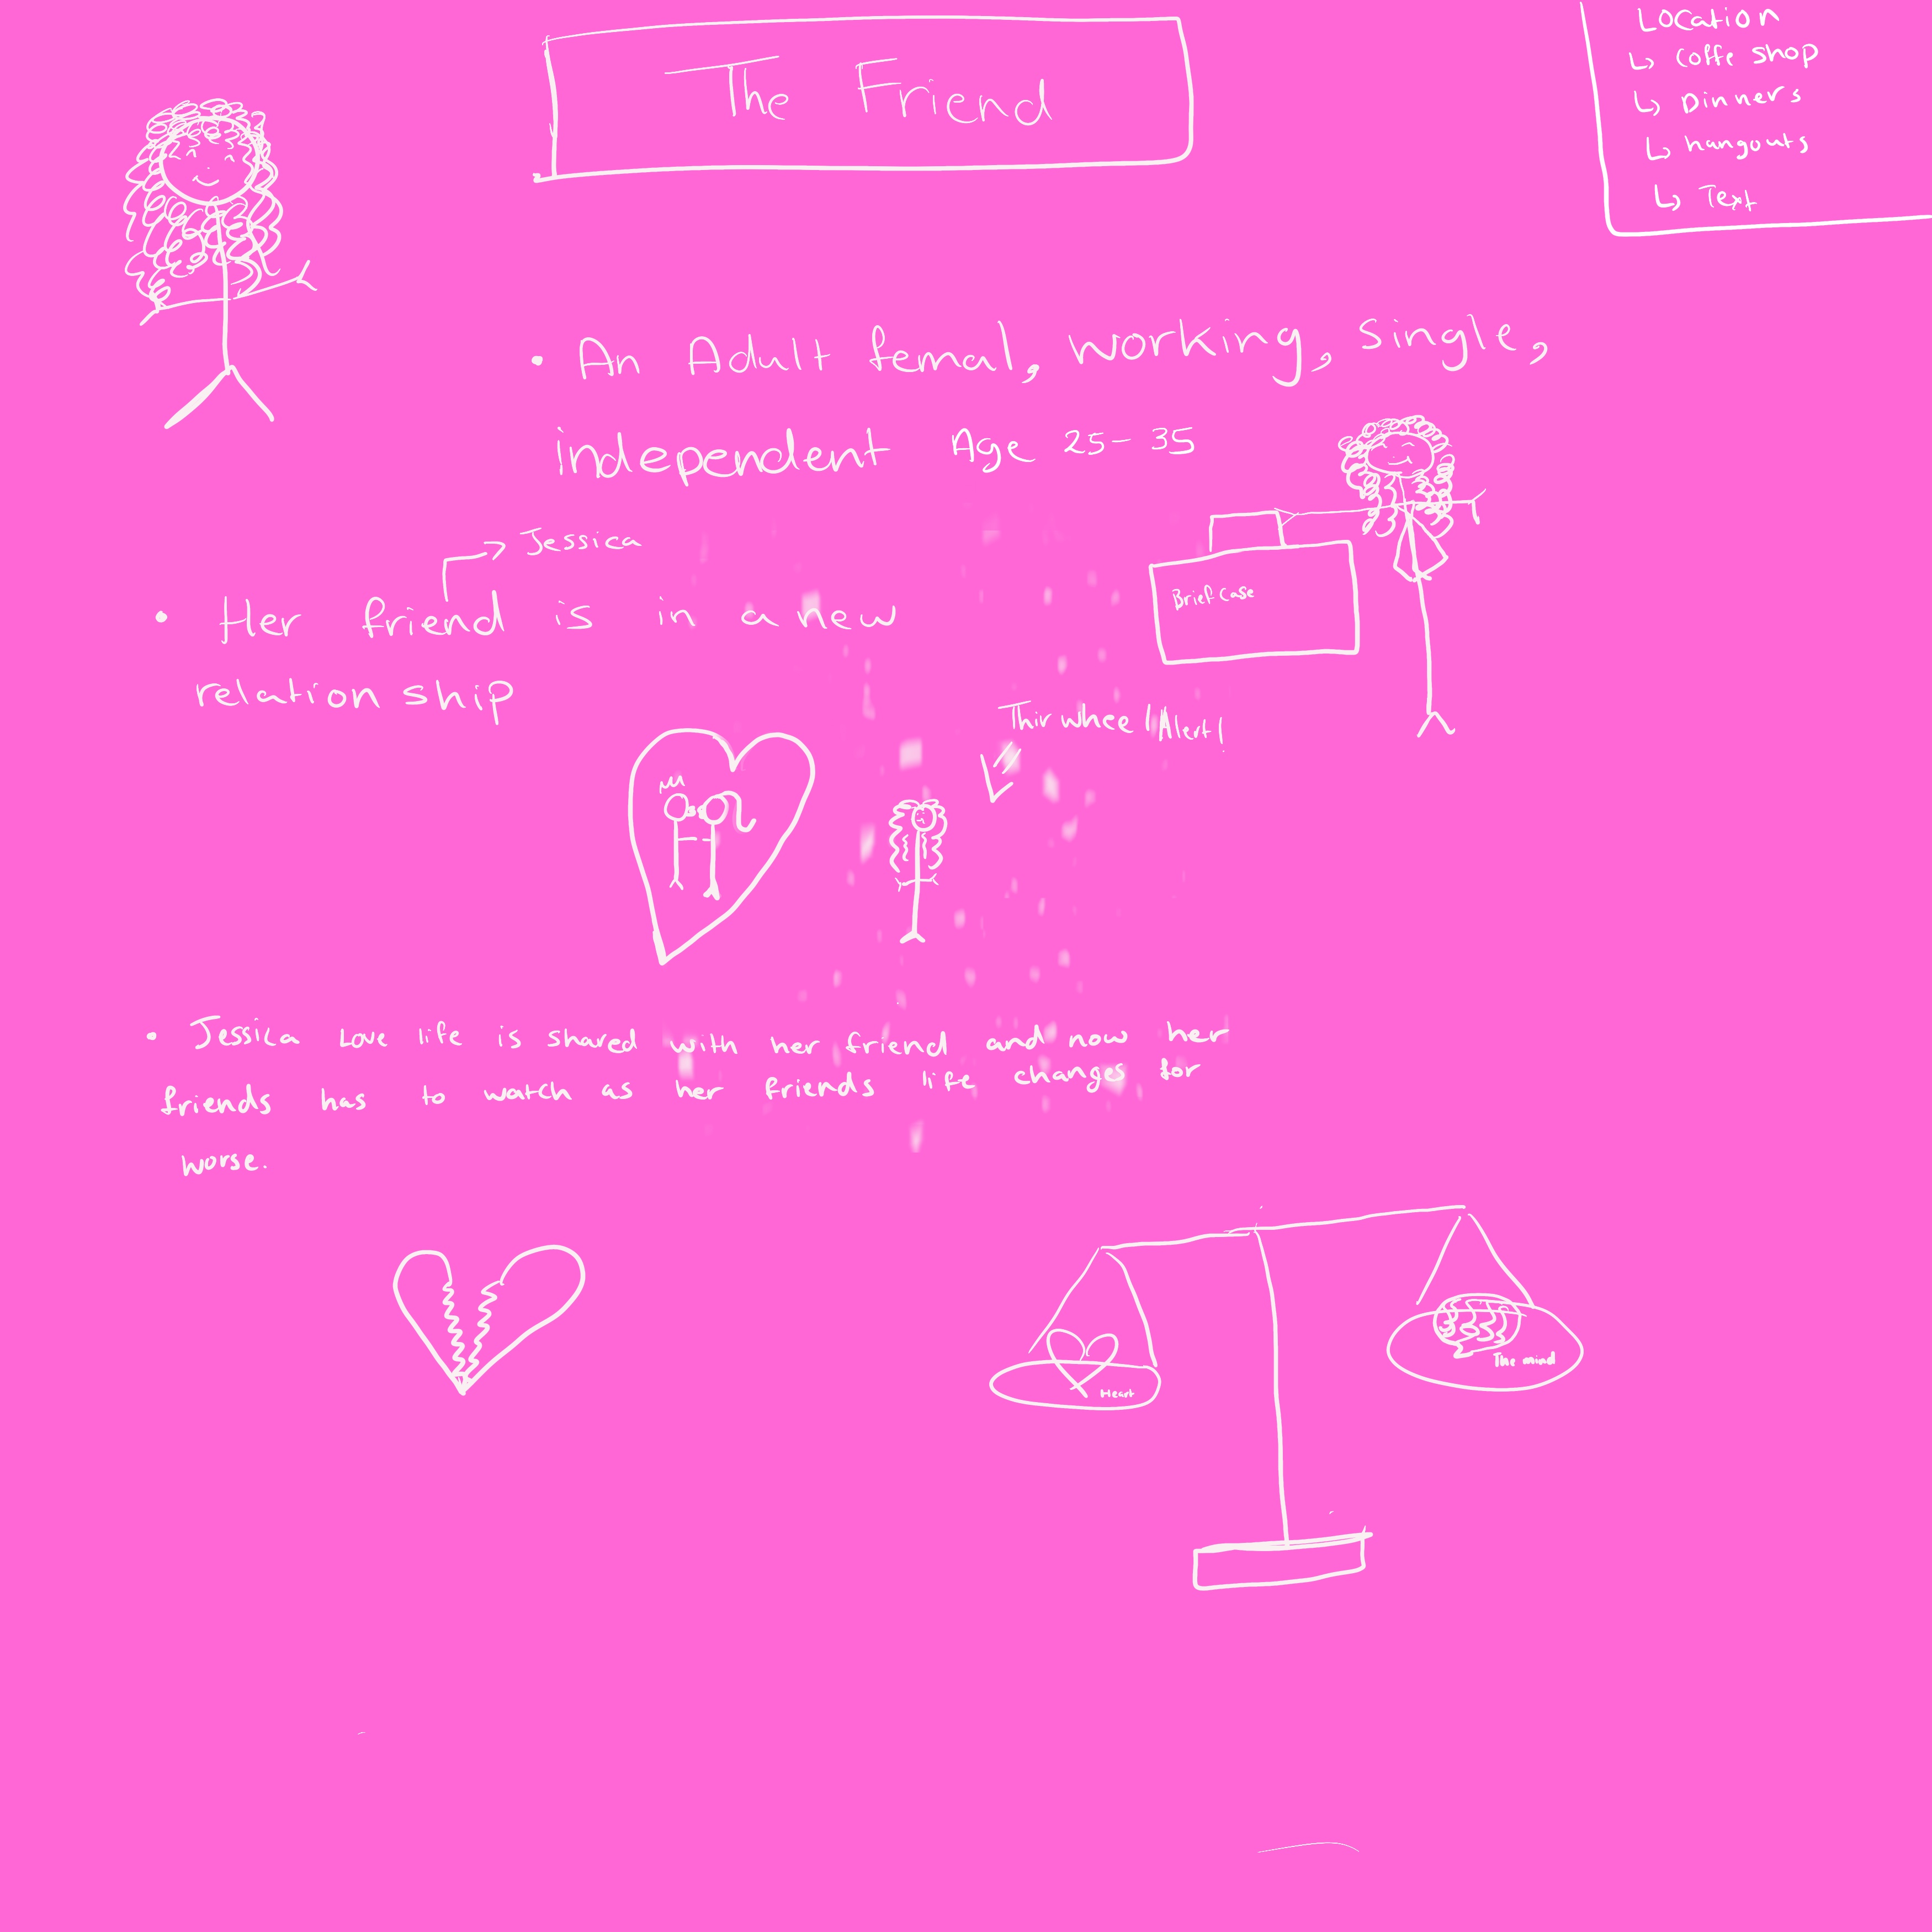 The Friend
Location
↳ Coffe shop
↳ Dinners
↳ hangouts
↳ Text
• An Adult femal, working, single,
independent Age 25-35
Brief case
Jessica
• Her friend is in a new
relationship
Thir wheel Alert!
• Jessica Love life is shared with her friend and now her
friends has to watch as her friends life changes for
worse.
Heart
The mind